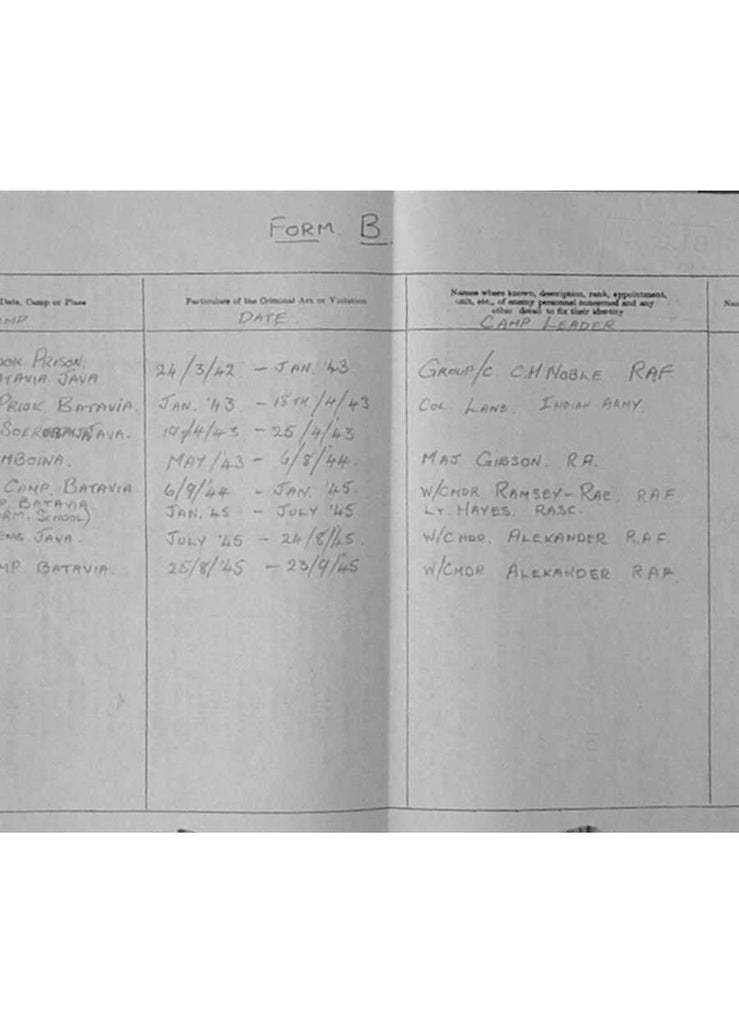 FORM B.
Date, Camp or Place
Particulars of the Criminal Act or Violation
Names where known, description, rank, appointment,
unit, etc., of enemy personnel concerned and any
other detail to fix their identity
DATE
CAMP LEADER
PRISON. 24/3/42 - JAN. '43 GROUP/C C.H NOBLE RAF
JAVA
PRIOK BATAVIA JAN. '43 - 18TH/4/43 COL LANE. INDIAN ARMY
JAVA. 19/4/43 - 25/4/43
MBOINA. MAY/43 - 6/8/44. MAJ GIBSON. R.A.
CAMP. BATAVIA 6/9/44 - JAN. '45. W/CMDR RAMSEY-RAE. RAF
BATAVIA JAN. '45 - JULY '45 LT. HAYES. RASC.
SCHOOL)
ENG JAVA. JULY '45 - 24/8/45. W/CMDR. ALEXANDER R.A.F.
MP BATAVIA. 25/8/'45 - 23/9/'45 W/CMDR ALEXANDER R A F.